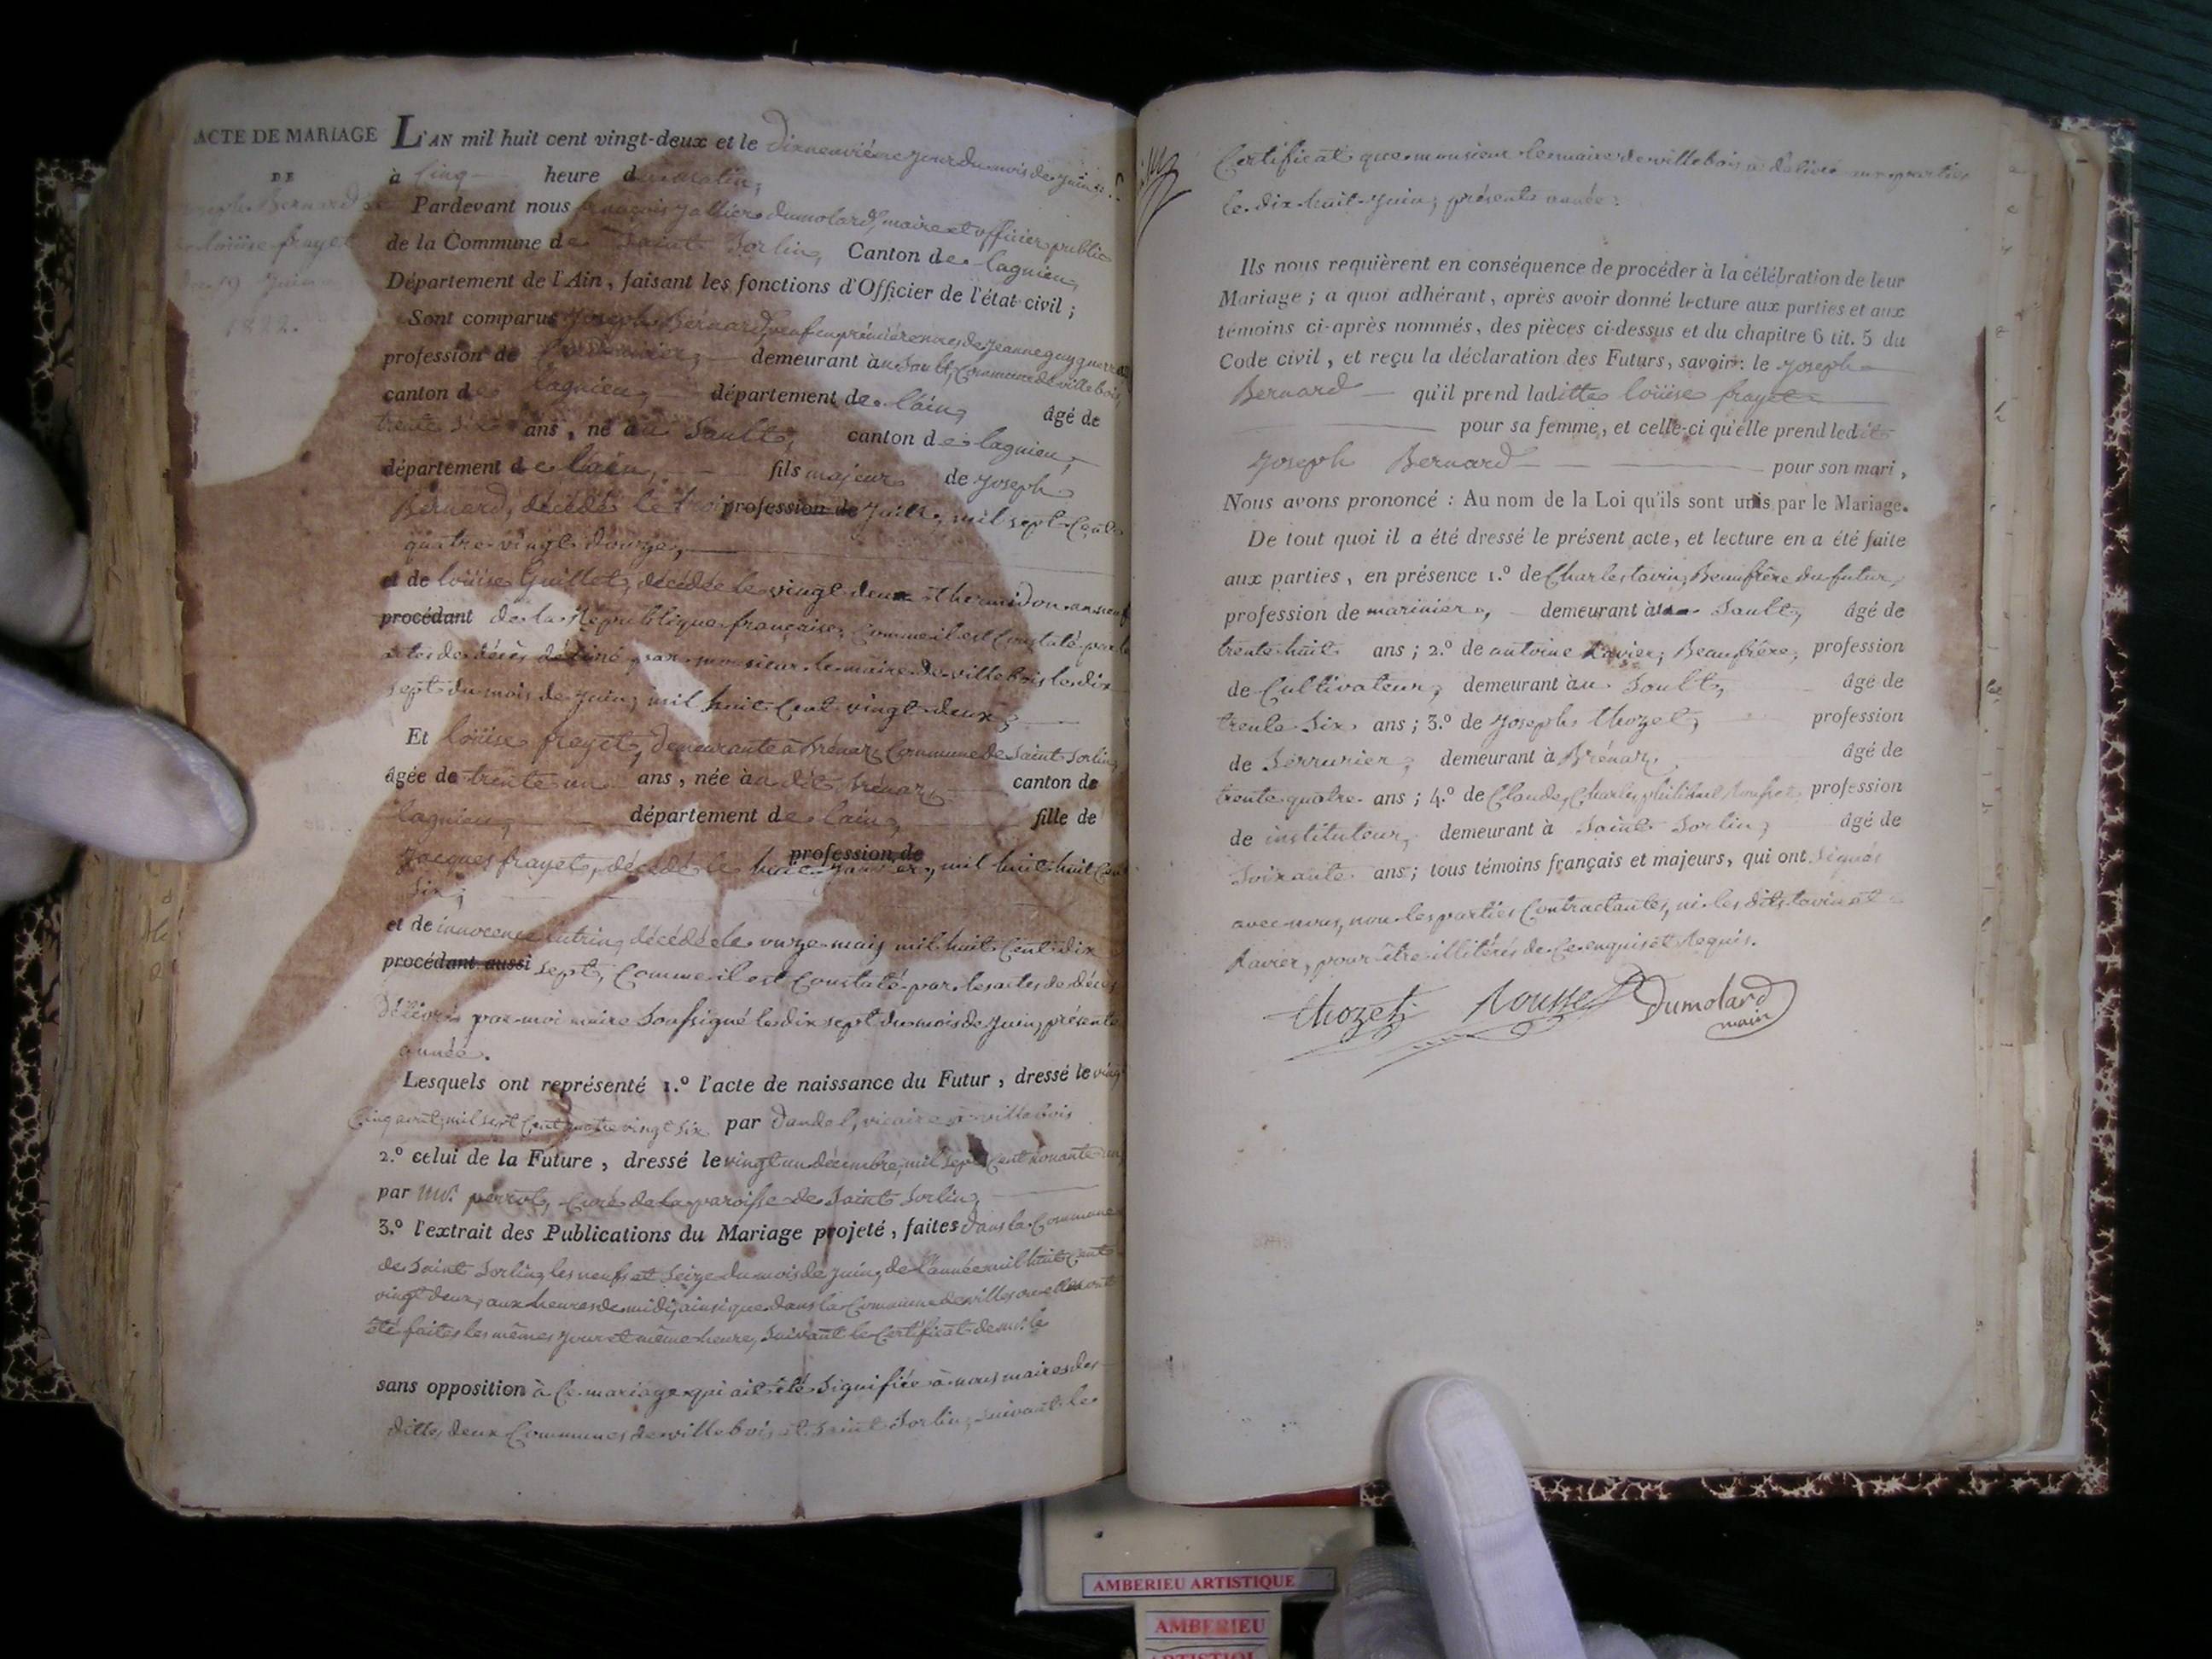 ACTE DE MARIAGE
DE
Joseph Bernard
louise frayet
19 Juin
1822.
L'AN mil huit cent vingt-deux et le dixneuvième jour du mois de Juin
à cinq heure du matin,
Pardevant nous françois dumolard, maire et officier public
de la Commune de Saint Sorlin, Canton de lagnieu,
Département de l'Ain, faisant les fonctions d'Officier de l'état civil ;
Sont comparus Joseph Bernard, veuf en premières noces de jeanne
profession de demeurant au Sault, Commune de villebois,
canton de lagnieu, département de l'ain, âgé de
trente six ans, né au Sault, canton de lagnieu,
département de l'ain, fils majeur de joseph
Bernard, décédé le trois profession de mil sept Cent
quatre vingt douze,
et de louise Guillet, décédée le vingt deux thermidor an neuf
procédant de la République française, comme il est Constaté par les
actes de décès délivré par monsieur le maire de villebois le dix
sept du mois de juin, mil huit Cent vingt deux ;
Et louise frayet, demeurante à Brénaz Commune de Saint Sorlin,
âgée de trente un ans, née au dit Brénaz canton de
lagnieu, département de l'ain, fille de
profession de
Jacques frayet, décédé le huit Janvier, mil huit huit Cent
Six ;
et de innocence décédée le onze mai mil huit Cent dix
procédant aussi sept, Comme il est Constaté par les actes de décès
délivrés par moi maire Soussigné le dix sept du mois de Juin, présente
année.
Lesquels ont représenté 1.º l'acte de naissance du Futur, dressé le vingt
Cinq août, mil sept Cent quatre vingt six par Dandel, vicaire à villebois
2.º celui de la Future, dressé le vingt un décembre, mil sept Cent nonante un,
par Mr. perrot, Curé de la paroisse de Saint Sorlin,
3.º l'extrait des Publications du Mariage projeté, faites dans la Commune
de Saint Sorlin, les neuf et Seize du mois de juin, de l'année mil huit Cent
vingt deux, aux heures de midi, ainsi que dans la Commune de villebois ou elles ont
été faites les mêmes jour et même heure, Suivant le Certificat de mr. le
sans opposition à ce mariage qui ait été Signifiée à nous maires des
dittes deux Communes de villebois et Saint Sorlin, suivant le
Certificat que monsieur le maire de villebois a délivré aux parties
le dix huit juin, présente année.
Ils nous requièrent en conséquence de procéder à la célébration de leur
Mariage ; a quoi adhérant, après avoir donné lecture aux parties et aux
témoins ci-après nommés, des pièces ci-dessus et du chapitre 6 tit. 5 du
Code civil, et reçu la déclaration des Futurs, savoir : le joseph
Bernard qu'il prend laditte louïse frayet
pour sa femme, et celle-ci qu'elle prend ledit
Joseph Bernard pour son mari,
Nous avons prononcé : Au nom de la Loi qu'ils sont unis par le Mariage.
De tout quoi il a été dressé le présent acte, et lecture en a été faite
aux parties, en présence 1.º de Charles tavin, Beaufrère du futur,
profession de marinier, demeurant au Sault, âgé de
trente huit ans ; 2.º de antoine Ravier, Beaufrère, profession
de Cultivateur, demeurant au Sault, âgé de
trente Six ans ; 3.º de Joseph thozet, profession
de Serrurier, demeurant à Brénaz, âgé de
trente quatre ans ; 4.º de Claude Charles Rousset, profession
de instituteur, demeurant à Saint Sorlin, âgé de
Soixante ans ; tous témoins français et majeurs, qui ont Signés
avec nous, non les parties Contractantes, ni les dits tavin et
Ravier, pour être illitérés de Ce enquis et Requis.
thozet Rousset Dumolard
maire
AMBERIEU ARTISTIQUE
AMBERIEU
ARTISTIQUE